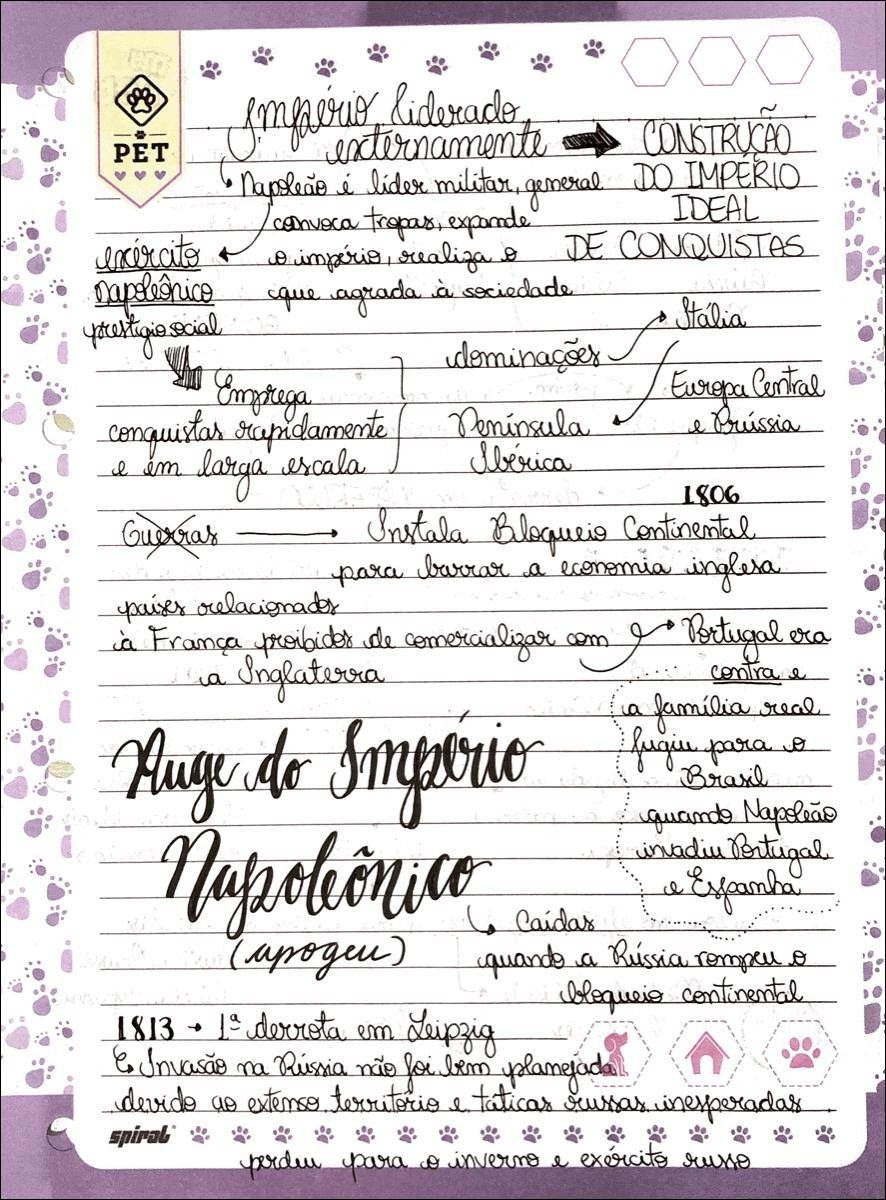 PET
Império liderado
externamente → CONSTRUÇÃO
DO IMPÉRIO
IDEAL
DE CONQUISTAS
Napoleão é líder militar, general
convoca tropas, expande
o império, realiza o
que agrada à sociedade
exército
napoleônico
prestígio social
Emprega
conquistas rapidamente
e em larga escala
dominações → Itália
Europa Central
e Prússia
Península
Ibérica
1806
Guerras → Instala Bloqueio Continental
para barrar a economia inglesa
países relacionados
à França proibidos de comercializar com
a Inglaterra
Portugal era
contra e
a família real
fugiu para o
Brasil
quando Napoleão
invadiu Portugal
e Espanha
Auge do Império
Napoleônico
(apogeu)
Caídas
quando a Rússia rompeu o
bloqueio continental
1813 → 1ª derrota em Leipzig
Invasão na Rússia não foi bem planejada
devido ao extenso território e táticas russas inesperadas
spiral
perdeu para o inverno e exército russo